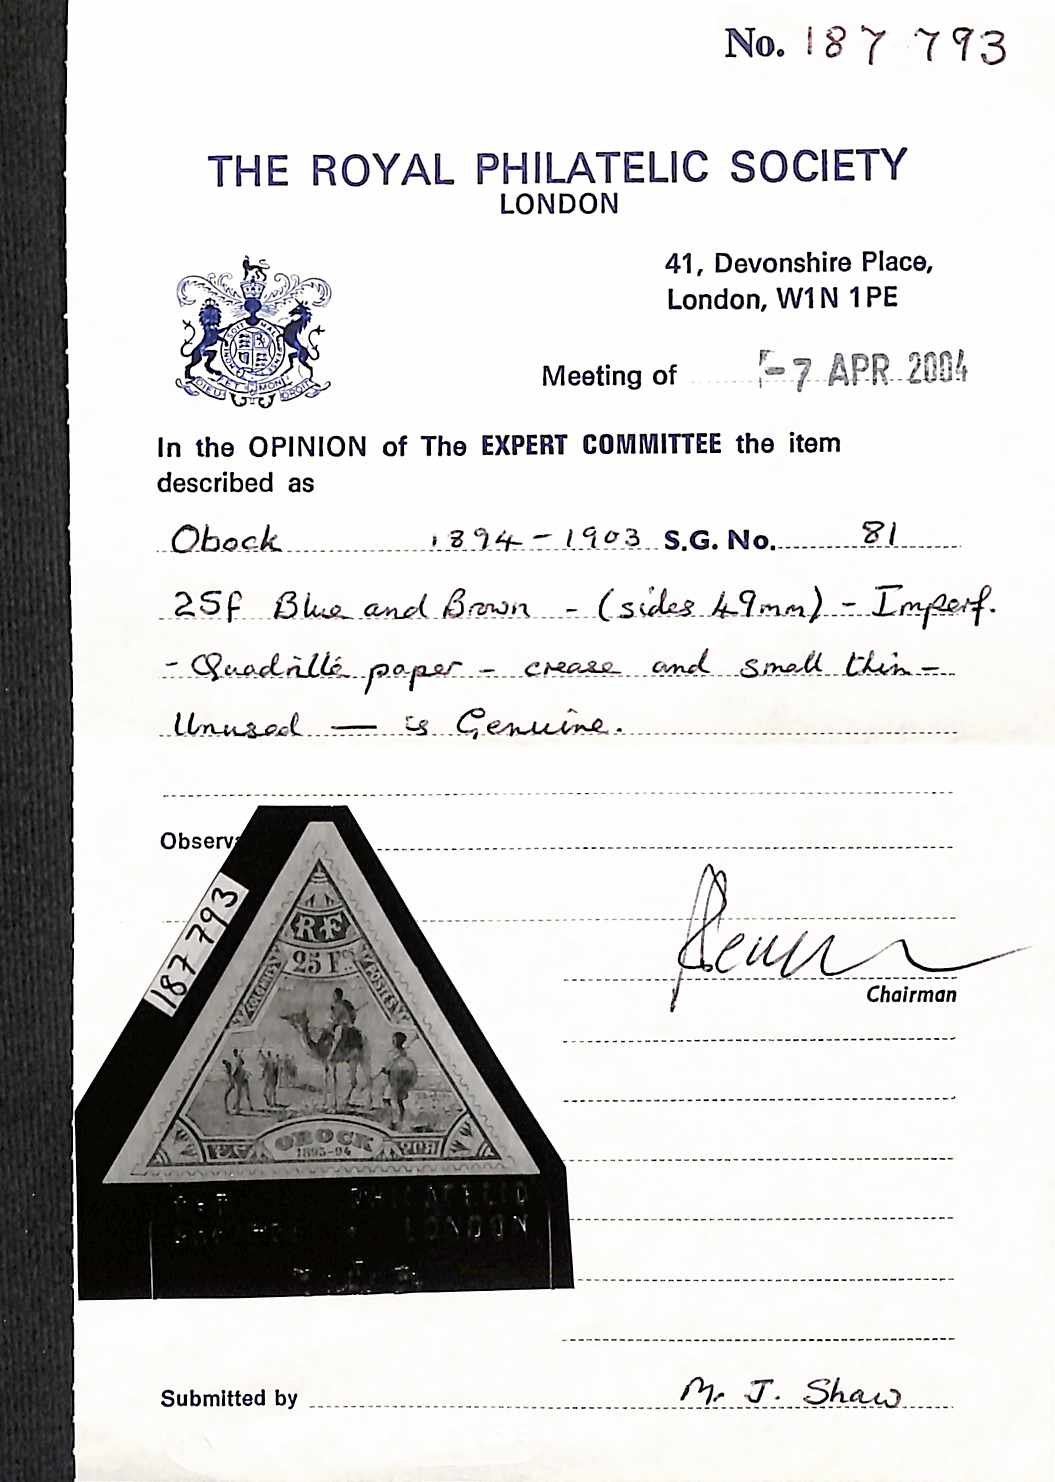 No. 187 793
THE ROYAL PHILATELIC SOCIETY
LONDON
41, Devonshire Place,
London, W1N 1PE
Meeting of -7 APR 2004
In the OPINION of The EXPERT COMMITTEE the item
described as
Obock 1894-1903 S.G. No. 81
25f Blue and Brown - (sides 49mm) - Imperf.
- Quadrillé paper - crease and small thin -
Unused — is Genuine.
Observa
187 793
RF
25 Fs
POSTES
OBOCK
1893-94
Chairman
PHILATELIC
LONDON
Submitted by Mr J. Shaw